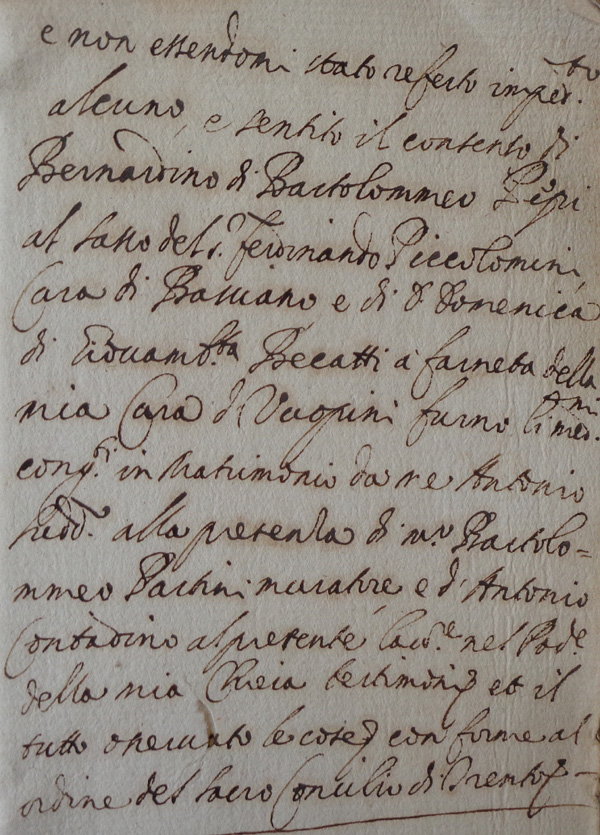 e non essendomi stato referto imped.to
alcuno, e sentito il consenso di
Bernardino di Bartolommeo Pepi
al Sasso del S.r Ferdinando Piccolomini
Cura di Bassiano e di D.a Domenica
di Giovamb.tta Becatti a farneta della
mia Cura di furno li med.mi
cong.ti in Matrimonio da me Antonio
sudd.o alla presenza di m.o Bartolo=
mmeo Pastini muratore, e d'Antonio
Contadino al presente lav.re nel Pod.e
della mia Chiesa testimonij et il
tutto osservato le cose conforme al
ordine del Sacro Concilio di Trento